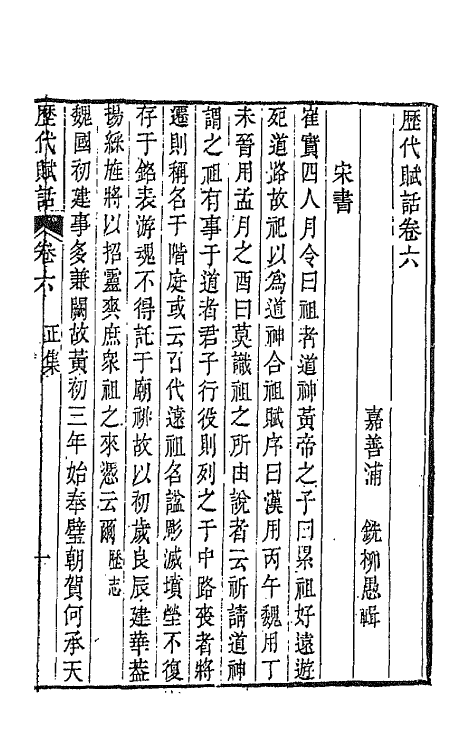 歷代賦話卷六
嘉善浦 銑柳愚輯
宋書
崔實四人月令曰祖者道神黃帝之子曰累祖好遠遊
死道路故祀以為道神合祖賦序曰漢用丙午魏用丁
未晉用孟月之酉曰莫識祖之所由說者云祈請道神
謂之祖有事于道者君子行役則列之于中路喪者將
遷則稱名于階庭或云百代遠祖名諡彫滅墳塋不復
存于銘表游魂不得託于廟祧故以初歲良辰建華葢
揚綵旌將以招靈爽庶衆祖之來憑云爾 歷志
魏國初建事多兼闕故黃初三年始奉璧朝賀何承天
歷代賦話 卷六 正集 一